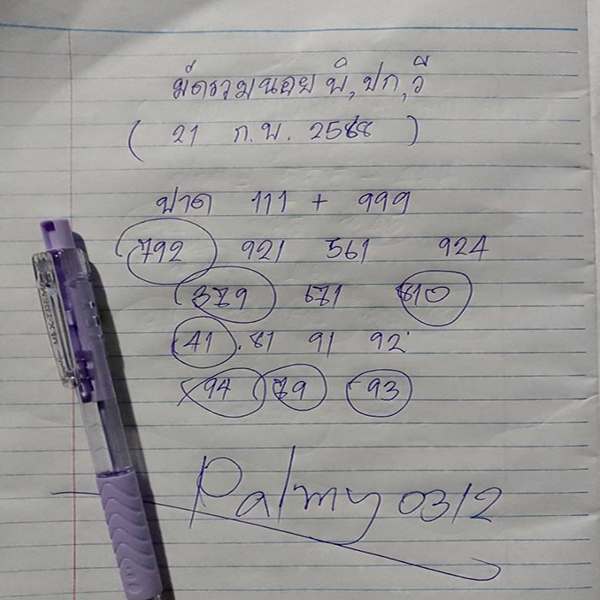 มัดรวมหอย พิ, ปก, วี
( 21 ก.พ. 2568 )
ปาด 111 + 999
792 921 561 924
379 671 810
41 . 81 91 92
94 79 93
Palmy 0312